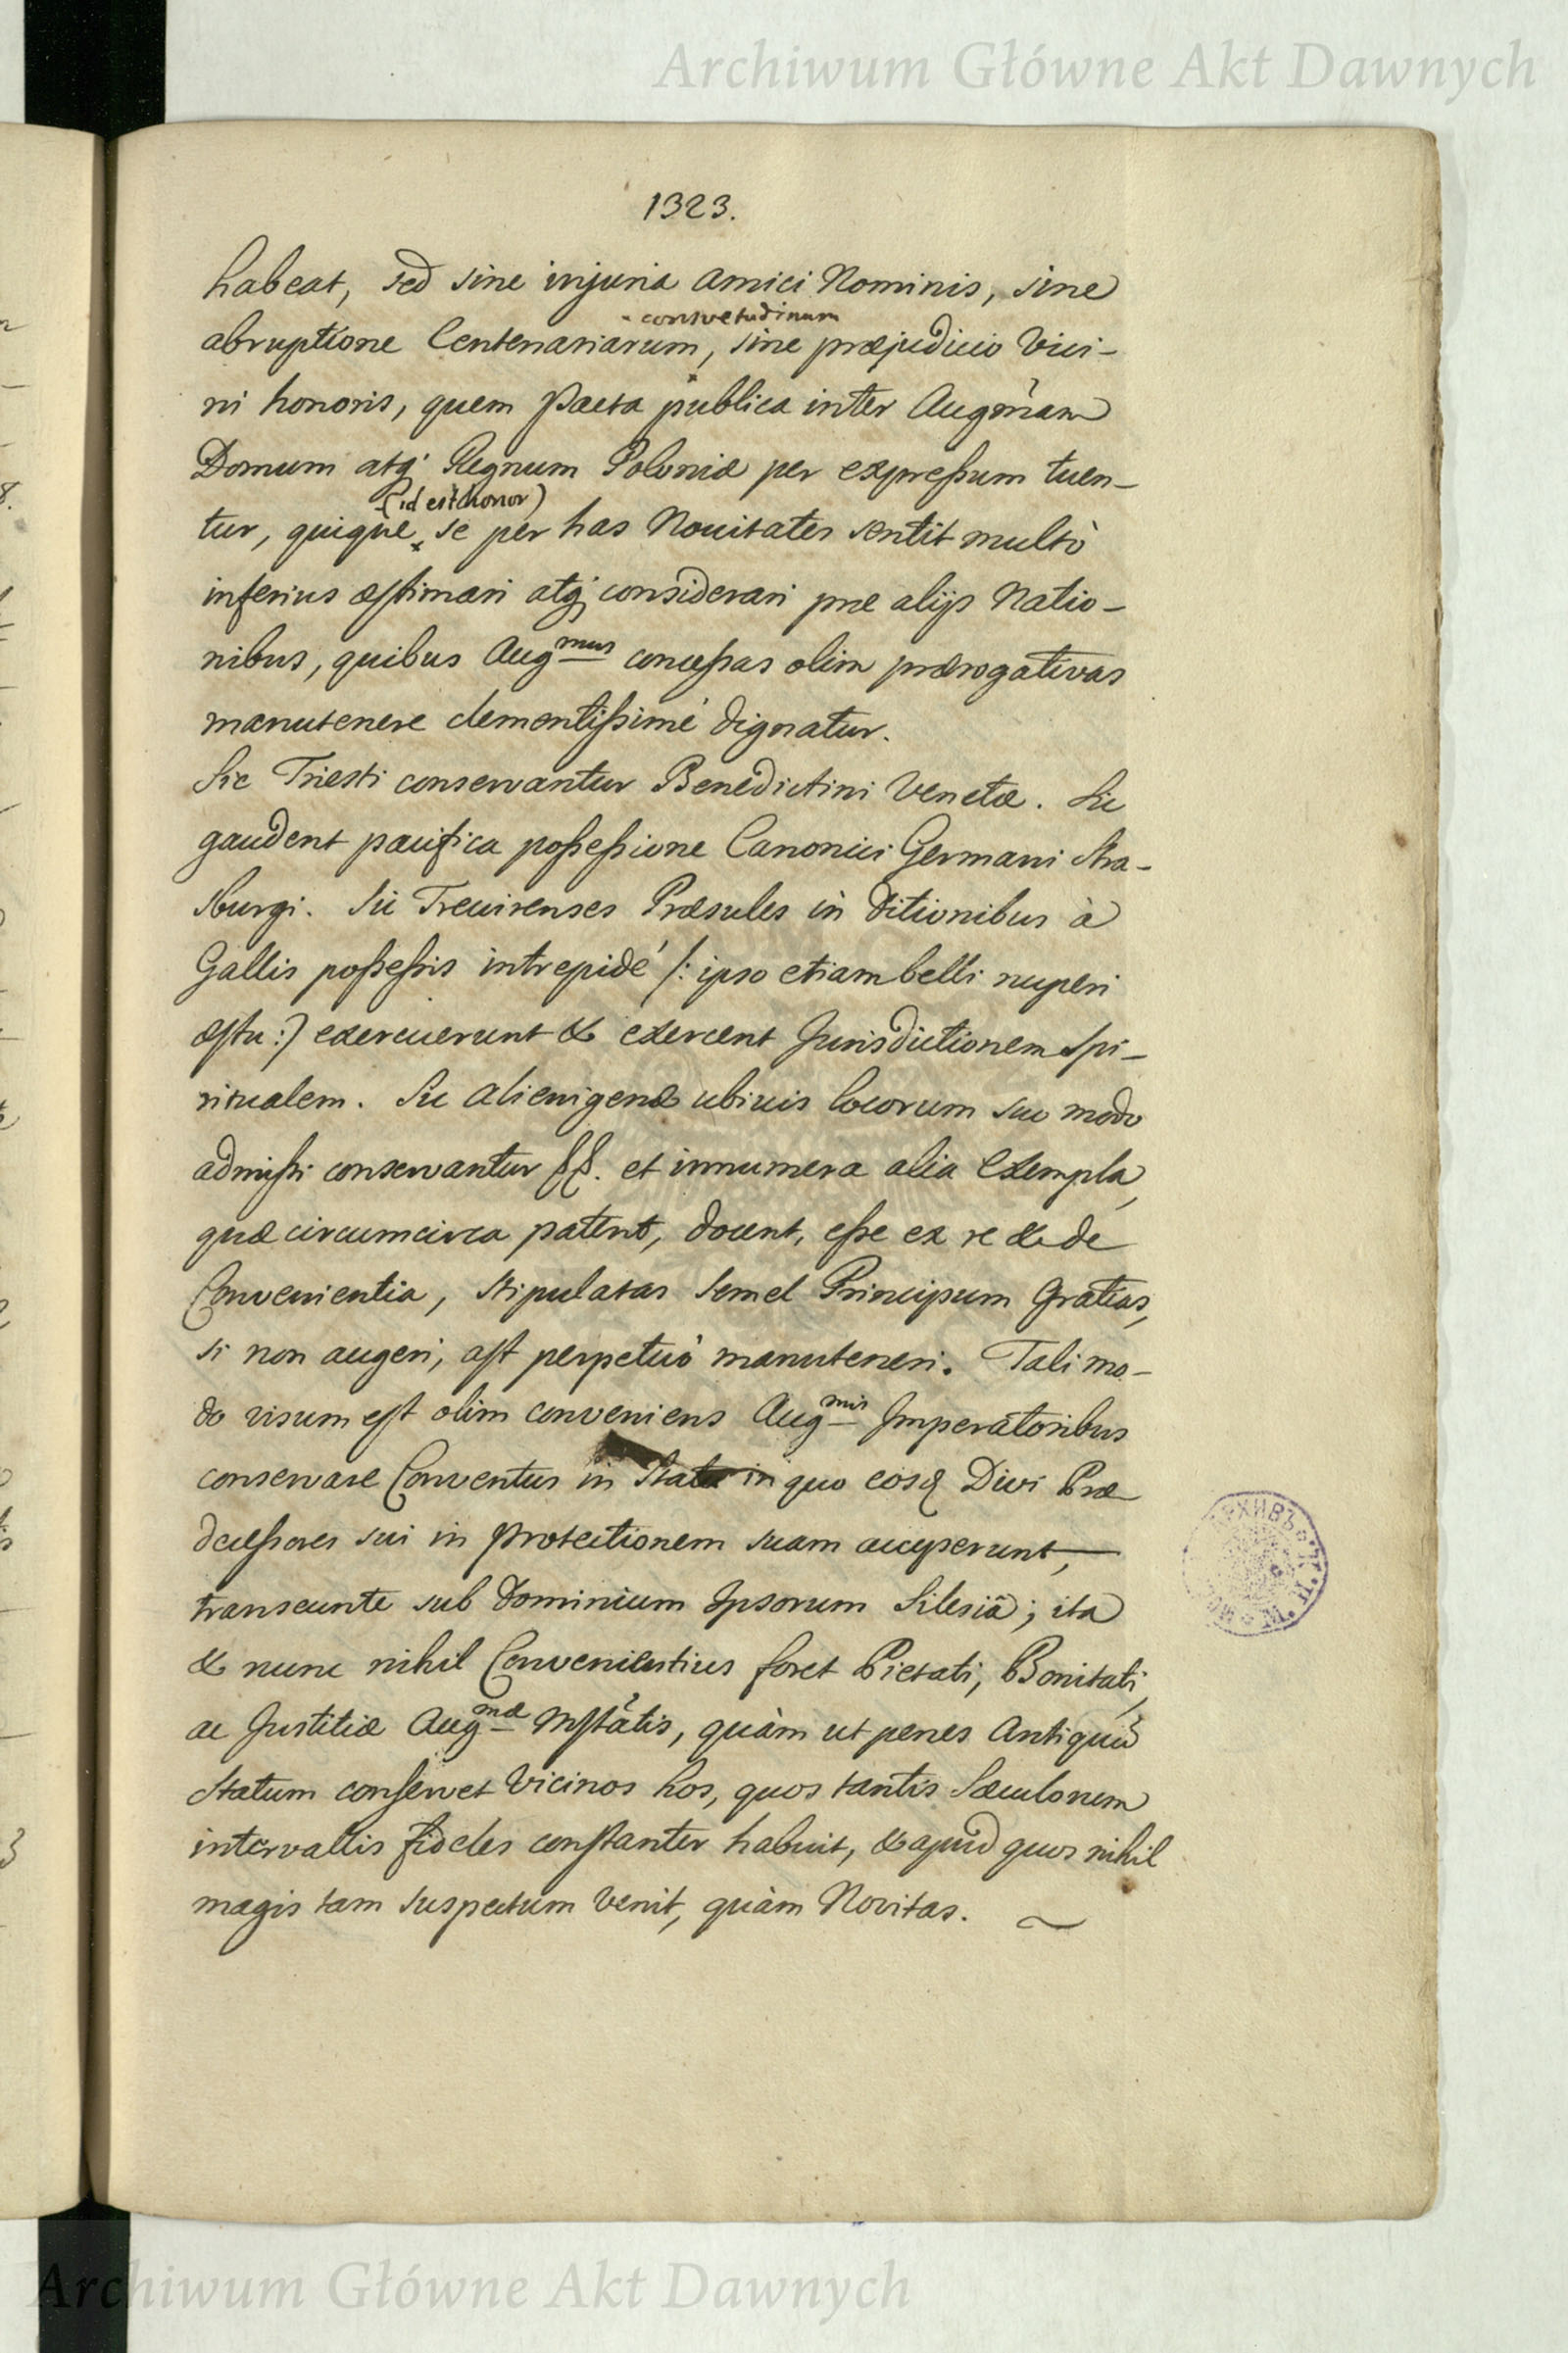 Archiwum Główne Akt Dawnych
1323.
habeat, sed sine injuria amici Nominis, sine
consvetudinum
abruptione Centenariarum, sine præjudicio Vici-
ni honoris, quem Pacta publica inter Augm̃am
Domum atq; Regnum Poloniæ per expressum tuen-
(id est honor)
tur, quique se per has Novitates sentit multò
inferius æstimari atq; considerari præ alijs Natio-
nibus, quibus Augmus concessas olim prærogativas
manutenere clementissimé dignatur.
Sic Triesti conservantur Benedictini Venetæ. Sic
gaudent pacifica possessione Canonici Germani Stra-
sburgi. Sic Trevirenses Præsules in ditionibus à
Gallis possessis intrepidé /: ipso etiam belli nuperi
æstu :) exercuerunt & exercent Jurisdictionem Spi-
ritualem. Sic alienigenæ ubivis locorum suo modo
admissi conservantur et innumera alia Exempla,
quæ circumcirca patent, docent, esse ex re & de
Convenientia, stipulatas semel Principum Gratias,
si non augeri, ast perpetuò manuteneri. Tali mo-
do visum est olim conveniens Augmis Imperatoribus
conservare Conventus in Statu in quo eosq; Divi Præ
decessores sui in protectionem suam acceperunt,
transeunte sub Dominium Ipsorum Silesiâ; ita
& nunc nihil Convenientius foret Pietati, Bonitati,
ac Justitiæ Augmæ Mstãtis, quàm ut penes Antiquũ
Statum conservet Vicinos hos, quos tantis Sæculorum
intervallis fideles constanter habuit, & apud quos nihil
magis tam suspectum venit, quàm Novitas.
Archiwum Główne Akt Dawnych